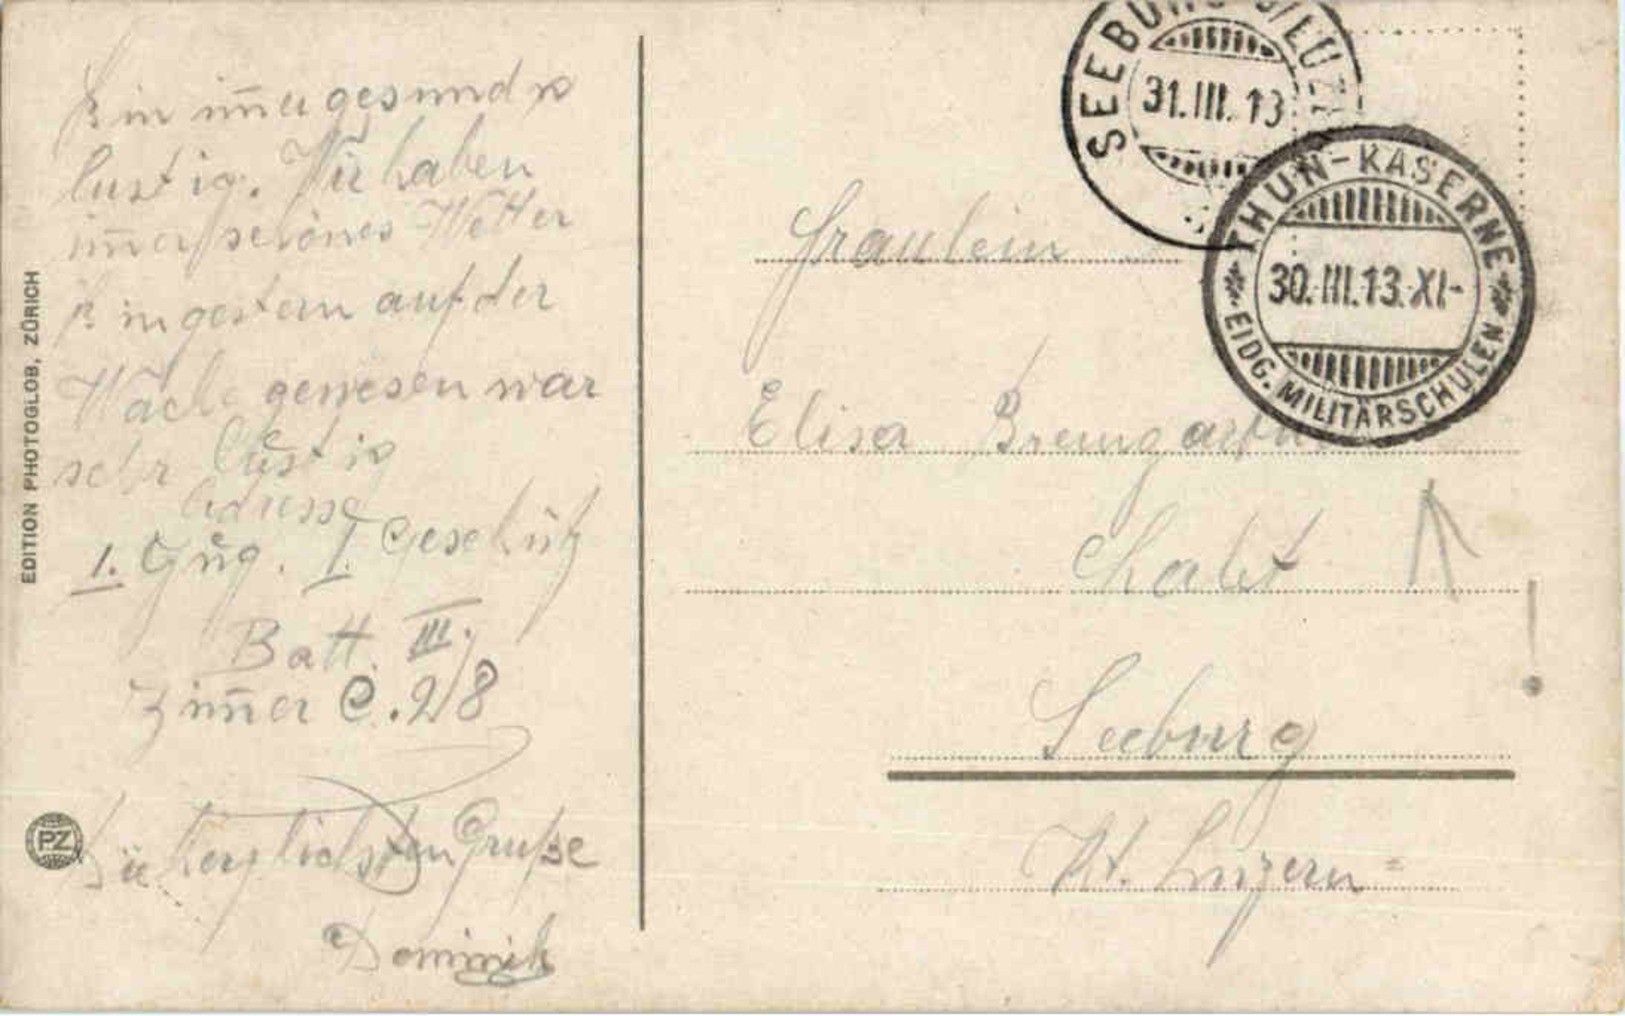 Bin im̅er gesund &
lustig. Wir haben
im̅er schönes Wetter
Bin gestern auf der
Wache gewesen war
sehr lustig
Adresse
1. Zug. I. Geschütz
Batt. III.
Zim̅er C. 2/8
Die herzlichsten Grüße
Dominik
EDITION PHOTOGLOB, ZÜRICH
PZ
SEEBURG b/LUZ
31.III.13
THUN-KASERNE
30.III.13.XI-
EIDG. MILITÄRSCHULEN
Fräulein
Elisa Bremgartner
Seeburg
!
Kt. Luzern